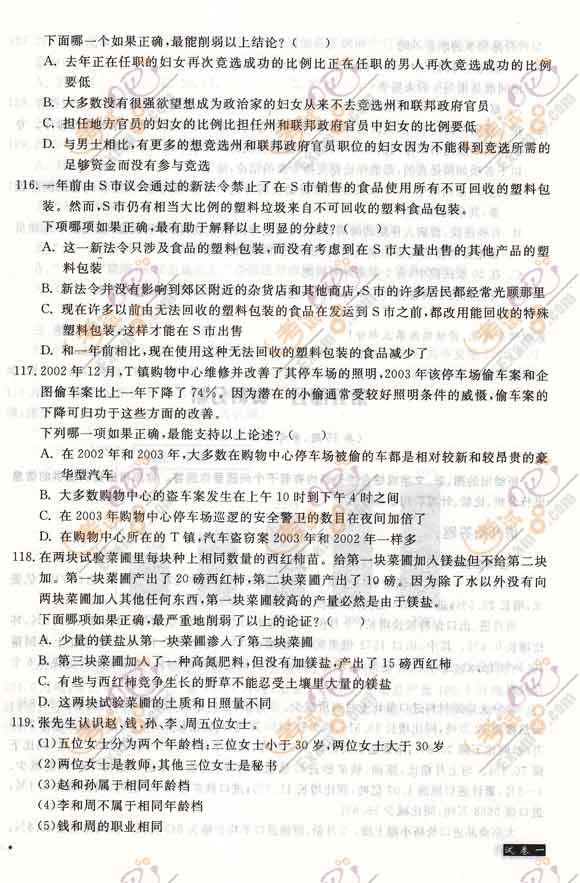 下面哪一个如果正确,最能削弱以上结论?(  )
A. 去年正在任职的妇女再次竞选成功的比例比正在任职的男人再次竞选成功的比例
要低
B. 大多数没有很强欲望想成为政治家的妇女从来不去竞选州和联邦政府官员
C. 担任地方官员的妇女的比例比担任州和联邦政府官员中妇女的比例要低
D. 与男士相比,有更多的想竞选州和联邦政府官员职位的妇女因为不能得到竞选所需的
足够资金而没有参与竞选
116. 一年前由S市议会通过的新法令禁止了在S市销售的食品使用所有不可回收的塑料包
装。然而,S市仍有相当大比例的塑料垃圾来自不可回收的塑料食品包装。
下项哪项如果正确,最有助于解释以上明显的分歧?(  )
A. 这一新法令只涉及食品的塑料包装,而没有考虑到在S市大量出售的其他产品的塑
料包装
B. 新法令并没有影响到郊区附近的杂货店和其他商店,S市的许多居民都经常光顾那里
C. 现在许多以前由无法回收的塑料包装的食品在发运到S市之前,都改用能回收的特殊
塑料包装,这样才能在S市出售
D. 和一年前相比,现在使用这种无法回收的塑料包装的食品减少了
117. 2002年12月,T镇购物中心维修并改善了其停车场的照明,2003年该停车场偷车案和企
图偷车案比上一年下降了74%。因为潜在的小偷通常受较好照明条件的威慑,偷车案的
下降可归功于这些方面的改善。
下列哪一项如果正确,最能支持以上论述?(  )
A. 在2002年和2003年,大多数在购物中心停车场被偷的车都是相对较新和较昂贵的豪
华型汽车
B. 大多数购物中心的盗车案发生在上午10时到下午4时之间
C. 在2003年购物中心停车场巡逻的安全警卫的数目在夜间加倍了
D. 在购物中心所在的T镇,汽车盗窃案2003年和2002年一样多
118. 在两块试验菜圃里每块种上相同数量的西红柿苗。给第一块菜圃加入镁盐但不给第二块
加。第一块菜圃产出了20磅西红柿,第二块菜圃产出了10磅。因为除了水以外没有向
两块菜圃加入其他任何东西,第一块菜圃较高的产量必然是由于镁盐。
下面哪项如果正确,最严重地削弱了以上的论证?(  )
A. 少量的镁盐从第一块菜圃渗入了第二块菜圃
B. 第三块菜圃加入了一种高氮肥料,但没有加镁盐,产出了15磅西红柿
C. 有些与西红柿竞争生长的野草不能忍受土壤里大量的镁盐
D. 这两块试验菜圃的土质和日照量不同
119. 张先生认识赵、钱、孙、李、周五位女士。
(1)五位女士分为两个年龄档;三位女士小于30岁,两位女士大于30岁
(2)两位女士是教师,其他三位女士是秘书
(3)赵和孙属于相同年龄档
(4)李和周不属于相同年龄档
(5)钱和周的职业相同
试卷一